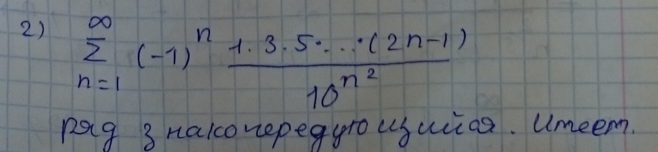 2) ∞
∑ (-1)ⁿ 1·3·5·...·(2n-1)
n=1 10^{n²}
ряд знакочередующийся. Имеет.